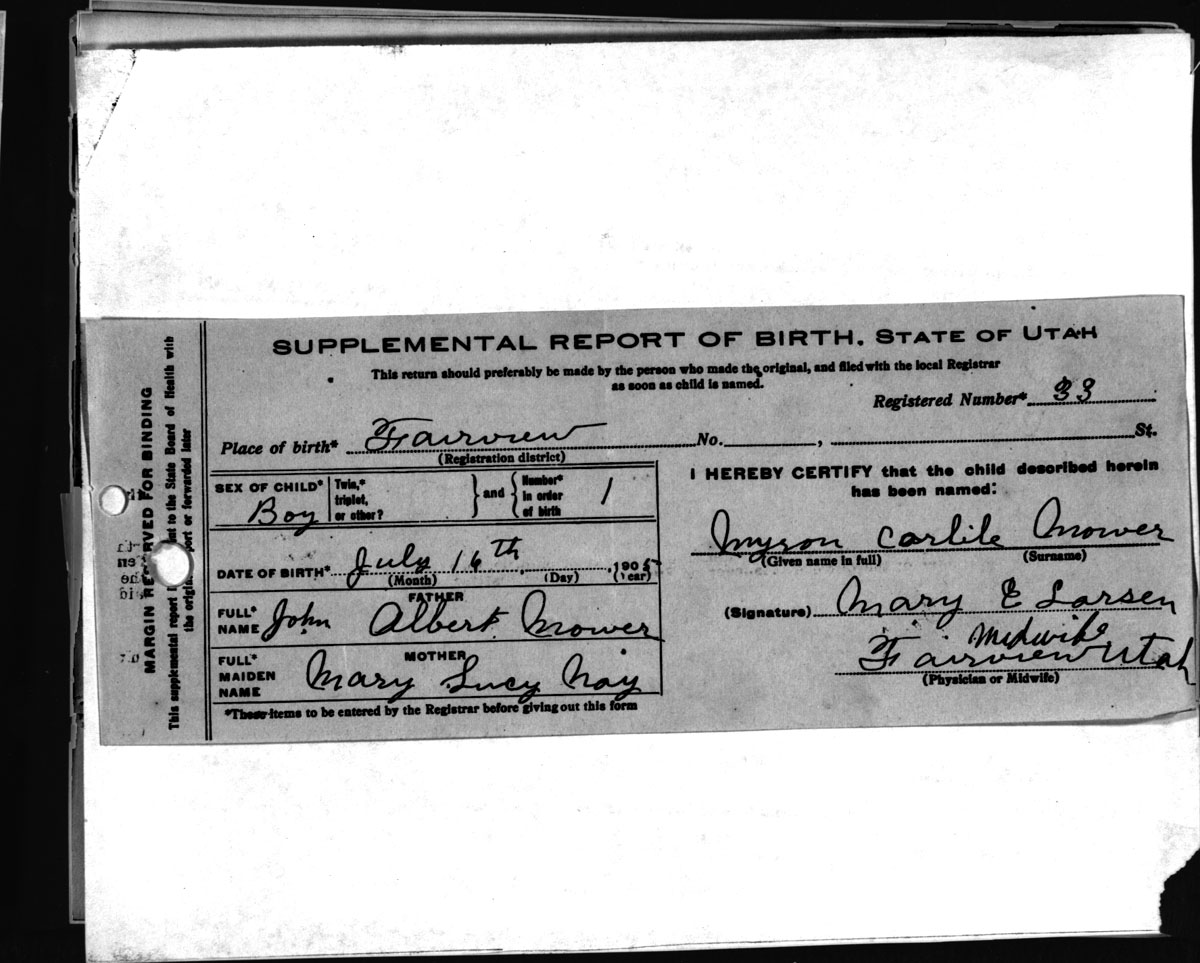 SUPPLEMENTAL REPORT OF BIRTH. STATE OF UTAH
This return should preferably be made by the person who made the original, and filed with the local Registrar
as soon as child is named.
Registered Number* 33
Place of birth* Fairview No. , St.
(Registration district)
SEX OF CHILD* Boy
Twin,* triplet, or other? } and { Number* in order of birth 1
DATE OF BIRTH* July 16th, , 1905
(Month) (Day) (Year)
FATHER
FULL* NAME John Albert Mower
MOTHER
FULL* MAIDEN NAME Mary Lucy Nay
*These items to be entered by the Registrar before giving out this form
I HEREBY CERTIFY that the child described herein
has been named:
Myron Carlile Mower
(Given name in full) (Surname)
(Signature) Mary E Larsen
Midwife
Fairview Utah
(Physician or Midwife)
MARGIN RESERVED FOR BINDING
This supplemental report to the State Board of Health with
the original report or forwarded later